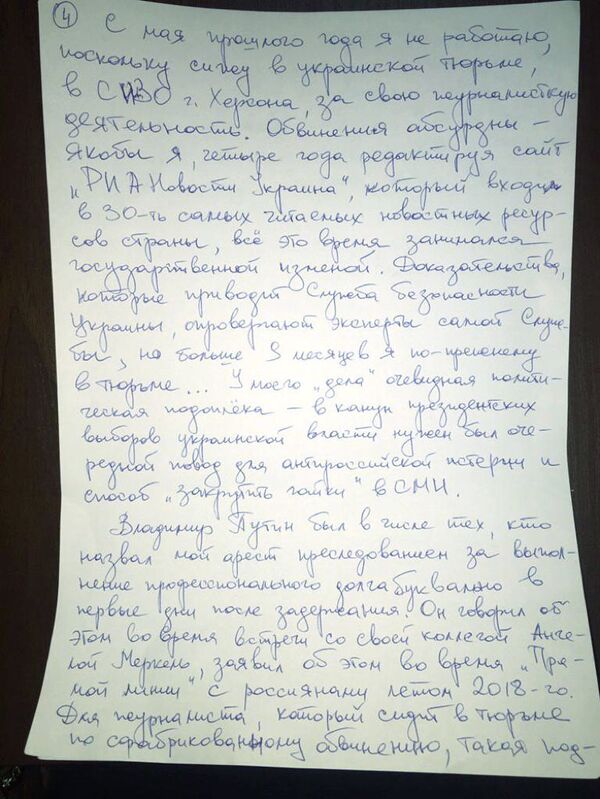 4
С мая прошлого года я не работаю,
поскольку сижу в украинской тюрьме,
в СИЗО г. Херсона, за свою журналисткую
деятельность. Обвинения абсурдны –
якобы я, четыре года редактируя сайт
„РИА Новости Украина“, который входил
в 30-ть самых читаемых новостных ресур-
сов страны, всё это время занимался
государственной изменой. Доказательства,
которые приводит Служба безопасности
Украины, опровергают эксперты самой Служ-
бы, но больше 9 месяцев я по-прежнему
в тюрьме... У моего „дела“ очевидная полити-
ческая подоплёка – в канун президентских
выборов украинской власти нужен был оче-
редной повод для антироссийской истерии и
способ „закрутить гайки“ в СМИ.
Владимир Путин был в числе тех, кто
назвал мой арест преследованием за выпол-
нение профессионального долга буквально в
первые дни после задержания. Он говорил об
этом во время встречи со своей коллегой Анге-
лой Меркель, заявил об этом во время „Пря-
мой линии“ с россиянами летом 2018-го.
Для журналиста, который сидит в тюрьме
по сфабрикованному обвинению, такая под-